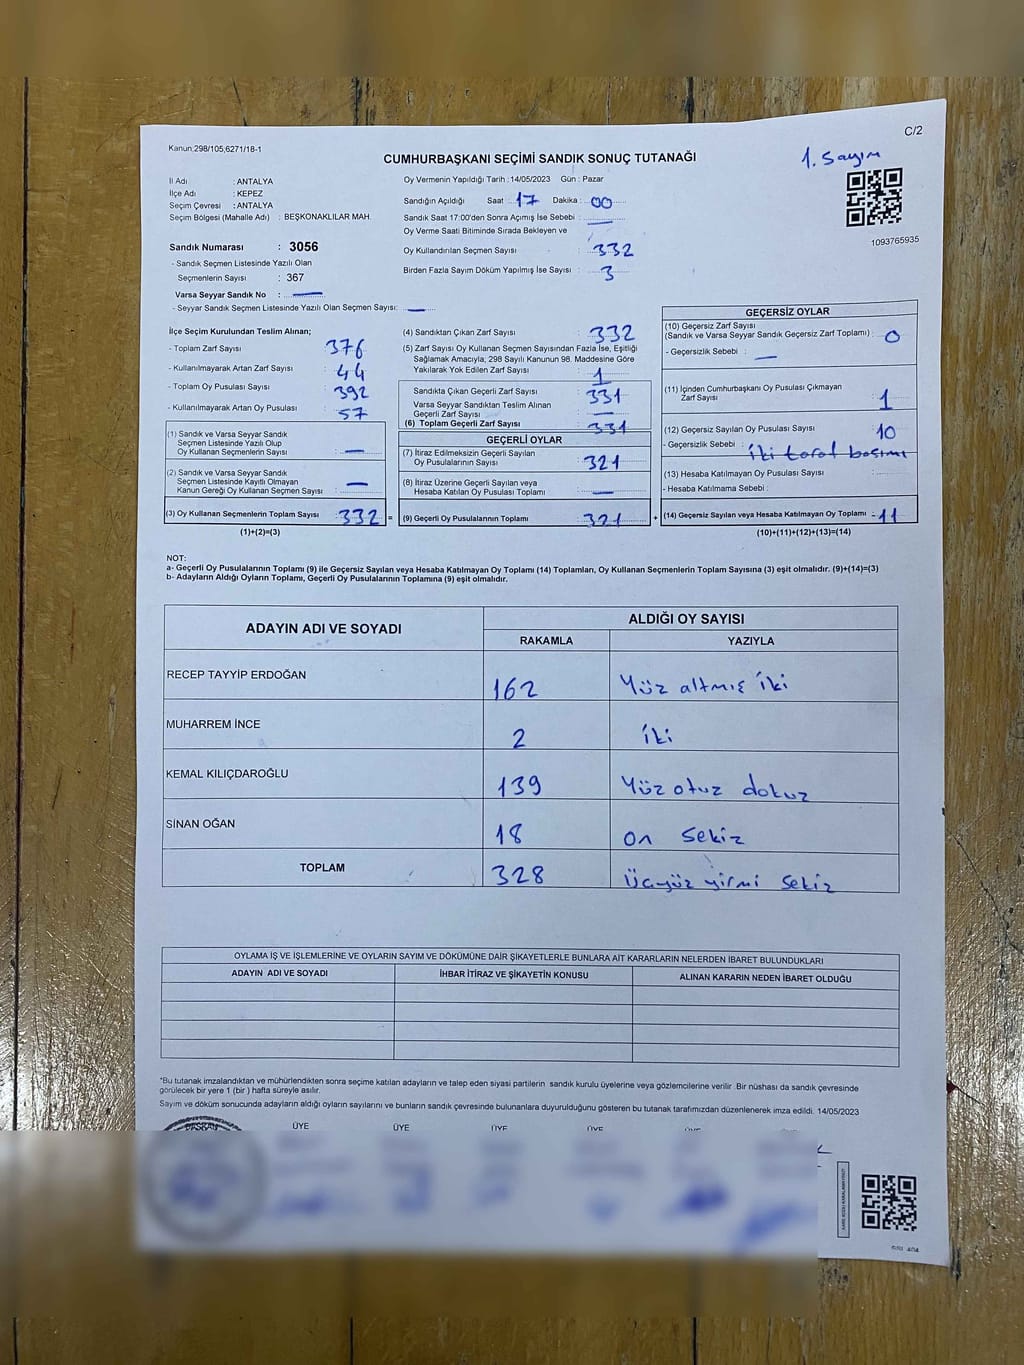 Kanun:298/105,6271/18-1
C/2
CUMHURBAŞKANI SEÇİMİ SANDIK SONUÇ TUTANAĞI
1. Sayım
1093765935
İl Adı : ANTALYA
İlçe Adı : KEPEZ
Seçim Çevresi : ANTALYA
Seçim Bölgesi (Mahalle Adı) : BEŞKONAKLILAR MAH.
Sandık Numarası : 3056
- Sandık Seçmen Listesinde Yazılı Olan
Seçmenlerin Sayısı : 367
Varsa Seyyar Sandık No :
- Seyyar Sandık Seçmen Listesinde Yazılı Olan Seçmen Sayısı:
Oy Vermenin Yapıldığı Tarih :14/05/2023 Gün : Pazar
Sandığın Açıldığı Saat : 17 Dakika : 00
Sandık Saat 17:00'den Sonra Açımış İse Sebebi :
Oy Verme Saati Bitiminde Sırada Bekleyen ve
Oy Kullandırılan Seçmen Sayısı : 332
Birden Fazla Sayım Döküm Yapılmış İse Sayısı : 3
İlçe Seçim Kurulundan Teslim Alınan;
- Toplam Zarf Sayısı 376
- Kullanılmayarak Artan Zarf Sayısı : 44
- Toplam Oy Pusulası Sayısı : 392
- Kullanılmayarak Artan Oy Pusulası : 57
(1) Sandık ve Varsa Seyyar Sandık
Seçmen Listesinde Yazılı Olup
Oy Kullanan Seçmenlerin Sayısı :
(2) Sandık ve Varsa Seyyar Sandık
Seçmen Listesinde Kayıtlı Olmayan
Kanun Gereği Oy Kullanan Seçmen Sayısı :
(3) Oy Kullanan Seçmenlerin Toplam Sayısı : 332 =
(1)+(2)=(3)
(4) Sandıktan Çıkan Zarf Sayısı : 332
(5) Zarf Sayısı Oy Kullanan Seçmen Sayısından Fazla İse, Eşitliği
Sağlamak Amacıyla; 298 Sayılı Kanunun 98. Maddesine Göre
Yakılarak Yok Edilen Zarf Sayısı : 1
Sandıkta Çıkan Geçerli Zarf Sayısı : 331
Varsa Seyyar Sandıktan Teslim Alınan
Geçerli Zarf Sayısı :
(6) Toplam Geçerli Zarf Sayısı : 331
GEÇERLİ OYLAR
(7) İtiraz Edilmeksizin Geçerli Sayılan
Oy Pusulalarının Sayısı : 321
(8) İtiraz Üzerine Geçerli Sayılan veya
Hesaba Katılan Oy Pusulası Toplamı :
(9) Geçerli Oy Pusulalarının Toplamı : 321 +
GEÇERSİZ OYLAR
(10) Geçersiz Zarf Sayısı
(Sandık ve Varsa Seyyar Sandık Geçersiz Zarf Toplamı) : 0
- Geçersizlik Sebebi :
(11) İçinden Cumhurbaşkanı Oy Pusulası Çıkmayan
Zarf Sayısı : 1
(12) Geçersiz Sayılan Oy Pusulası Sayısı : 10
- Geçersizlik Sebebi : iki taraf basımı
(13) Hesaba Katılmayan Oy Pusulası Sayısı :
- Hesaba Katılmama Sebebi :
(14) Geçersiz Sayılan veya Hesaba Katılmayan Oy Toplamı : 11
(10)+(11)+(12)+(13)=(14)
NOT:
a- Geçerli Oy Pusulalarının Toplamı (9) ile Geçersiz Sayılan veya Hesaba Katılmayan Oy Toplamı (14) Toplamları, Oy Kullanan Seçmenlerin Toplam Sayısına (3) eşit olmalıdır. (9)+(14)=(3)
b- Adayların Aldığı Oyların Toplamı, Geçerli Oy Pusulalarının Toplamına (9) eşit olmalıdır.
ADAYIN ADI VE SOYADI
ALDIĞI OY SAYISI
RAKAMLA YAZIYLA
RECEP TAYYİP ERDOĞAN 162 Yüz altmış iki
MUHARREM İNCE 2 iki
KEMAL KILIÇDAROĞLU 139 Yüz otuz dokuz
SİNAN OĞAN 18 on sekiz
TOPLAM 328 Üçyüz yirmi sekiz
OYLAMA İŞ VE İŞLEMLERİNE VE OYLARIN SAYIM VE DÖKÜMÜNE DAİR ŞİKAYETLERLE BUNLARA AİT KARARLARIN NELERDEN İBARET BULUNDUKLARI
ADAYIN ADI VE SOYADI İHBAR İTİRAZ VE ŞİKAYETİN KONUSU ALINAN KARARIN NEDEN İBARET OLDUĞU
*Bu tutanak imzalandıktan ve mühürlendikten sonra seçime katılan adayların ve talep eden siyasi partilerin sandık kurulu üyelerine veya gözlemcilerine verilir .Bir nüshası da sandık çevresinde
görülecek bir yere 1 (bir ) hafta süreyle asılır.
Sayım ve döküm sonucunda adayların aldığı oyların sayılarını ve bunların sandık çevresinde bulunanlara duyurulduğunu gösteren bu tutanak tarafımızdan düzenlenerek imza edildi. 14/05/2023
BAŞKAN ÜYE ÜYE ÜYE ÜYE ÜYE